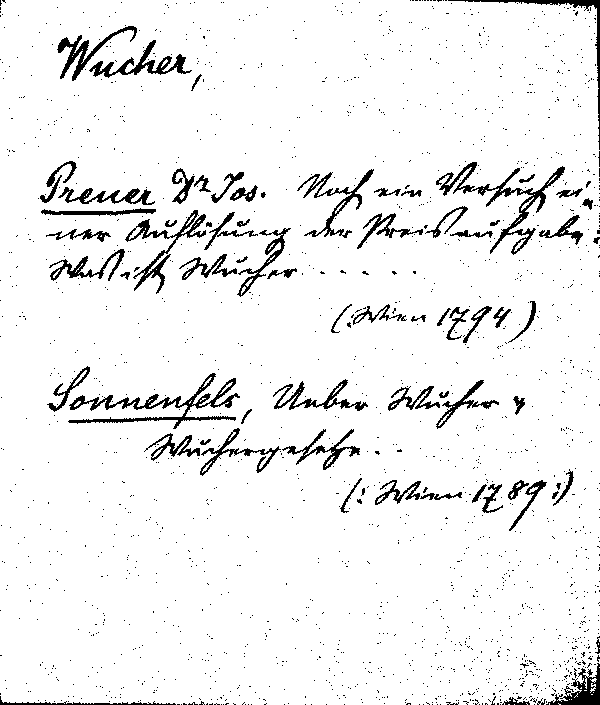 Wucher,
Preuer Dr Jos. Noch ein Versuch ei-
ner Auflösung der Preisaufgabe:
Was ist Wucher . . . . .
(: Wien 1794 )
Sonnenfels, Ueber Wucher u
Wuchergesetze. . .
(: Wien 1789 :)